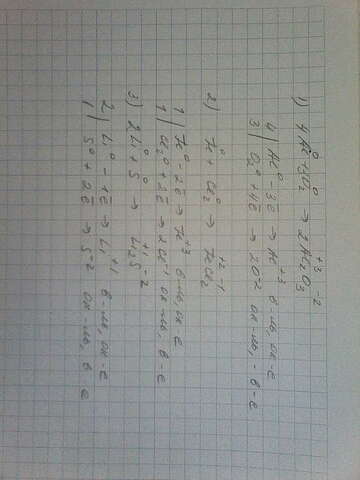 1) 4Al⁰+3O₂⁰ → 2Al₂⁺³O₃⁻²
4 | Al⁰ -3ē → Al⁺³ в-ль, ок-е
3 | O₂⁰ +4ē → 2O⁻² ок-ль, - в-е
2) Fe⁰ + Cl₂⁰ → Fe⁺²Cl₂⁻¹
1 | Fe⁰ -2ē → Fe⁺³ в-ль, ок-е
1 | Cl₂⁰ +2ē → 2Cl⁻¹ ок-ль, в-е
3) 2Li⁰ + S⁰ → Li₂⁺¹S⁻²
2 | Li⁰ -1ē → Li⁺¹ в-ль, ок-е
1 | S⁰ +2ē → S⁻² ок-ль, в-е